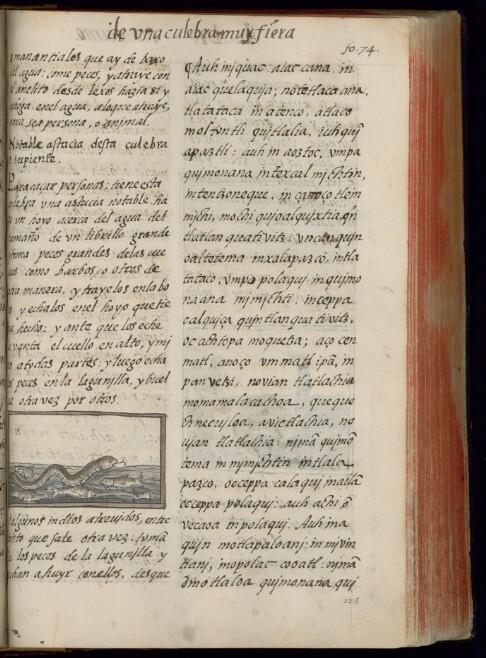 de vna culebra muy fiera
fo. 74.
manantiales que ay de baxo
del agua: come peces, y atraye con
el anelito desde lexos hazia si y
ahoga en el agua, a lo que atraye,
ora sea persona, o animal.
Notable astucia desta culebra
o serpiente.
Para caçar personas: tiene esta
culebra vna astucia notable, ha
ze vn hoyo acerca del agua del
tamaño de vn librillo grande
y toma peces grandes de las cue
uas como barbos, o otros de
otra manera, y trayelos en la bo
ca y echalos en el hoyo que tie
ne hecho: y ante que los eche
leuanta el cuello en alto, y mi
ra a todas partes: y luego echa
los peces en la lagunilla, y buel
ue otra vez por otros.
algunos indios atreuidos, entre
tanto que sale otra vez: toman
le los peces de la lagunilla y
echan a huyr con ellos, desque
¶ Auh injquac aiac cana, in
aiac quelaquja; no tetlacaana,
tlatataca in atenco, atlaco
quitlalia, iuhqujn
apaztli: auh in aoztoc, vmpa
quimonana in texcal mjchtin,
in tentzoneque, in çaço tlein
mjchi, mochi qujoalqujxtia, qujn
tlatlan quatiuitz: vncan qujn
oaltatema in xalapazco, in tla
tataco, vmpa polaquj in qujmo
naana in mjmjchti: in ceppa
calquiça quintlanquatiuitz,
oc achtopa moquetza; aço cen
matl, anoço vmmatl ipan, in
pan vetzi, novian tlatlachia
momamalacachoa, quequech
necujloa, avictlachia, no
ujan tlatlachia: njman qujmon
tema in mjmjchtin in tlala
pazco, oc ceppa calaquj in atlan
oc ceppa polaquj: auh achi
vecaoa in polaquj. Auh in a
quin motlapaloanj: in mjvin
tianj, inopolac cooatl: njman
onmotlaloa quimonana, quj
226